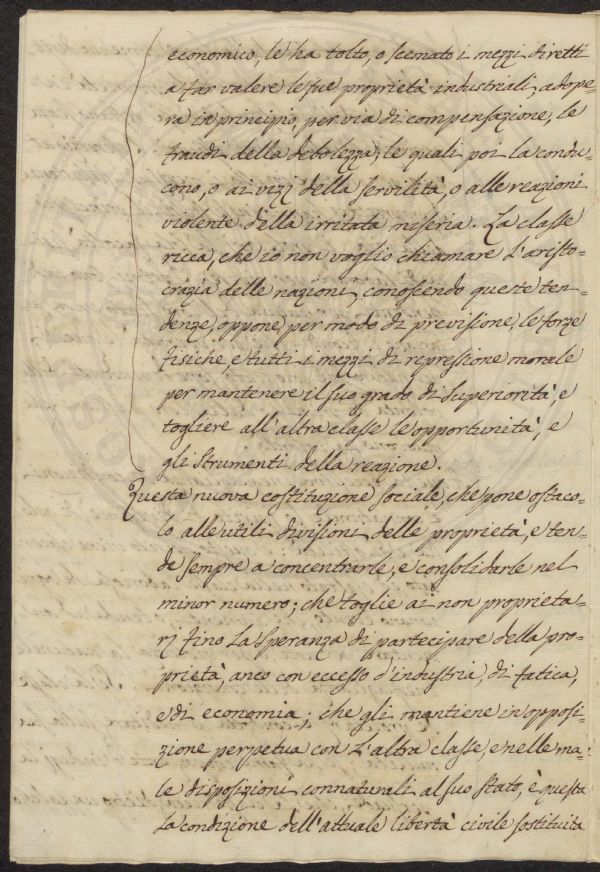 economico, le ha tolto, o scemato i mezzi diretti
a far valere le sue proprietà industriali, adope=
ra in principio, per via di compensazione, le
fraudi della debolezza, le quali poi la condu=
cono, o ai vizj della servilità, o alle reazioni
violente della irritata miseria. La classe
ricca, che io non voglio chiamare l'aristo=
crazia delle nazioni, conoscendo queste ten=
denze, oppone, per modo di previsione, le forze
fisiche, e tutti i mezzi di repressione morale
per mantenere il suo grado di superiorità, e
togliere all'altra classe le opportunità, e
gli strumenti della reazione.
Questa nuova costituzione sociale, che pone ostaco=
lo alle utili divisioni delle proprietà, e ten=
de sempre a concentrarle, e consolidarle nel
minor numero; che toglie ai non proprieta=
rj fino la speranza di partecipare della pro=
prietà, anco con eccesso d'industria, di fatica,
e di economia; che gli mantiene in opposi=
zione perpetua con l'altra classe, e nelle ma=
le disposizioni connaturali al suo stato, è questa
la condizione dell'attuale libertà civile sostituita